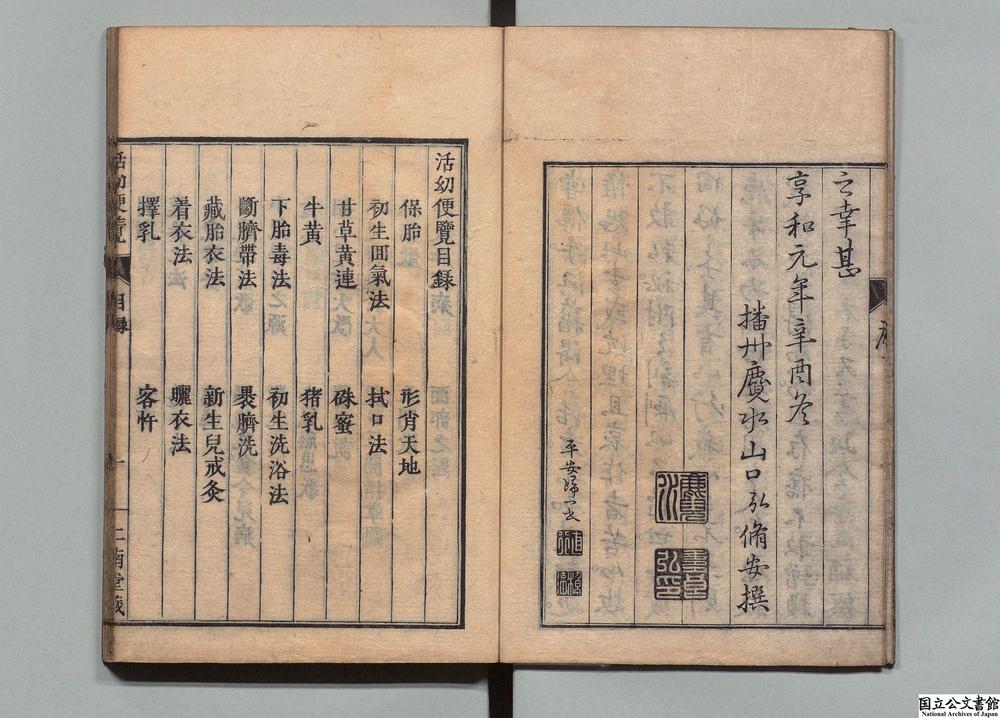 之幸甚
享和元年辛酉冬
播州廣水山口弘脩安撰
活幼便覽目錄
保胎
形肖天地
初生回氣法
拭口法
甘草黃連
硃蜜
牛黃
猪乳
下胎毒法
初生洗浴法
斷臍帶法
裹臍洗
藏胎衣法
新生兒戒灸
着衣法
曬衣法
擇乳
客忤
活幼便覽
目錄
一
二南堂藏
国立公文書館
National Archives of Japan